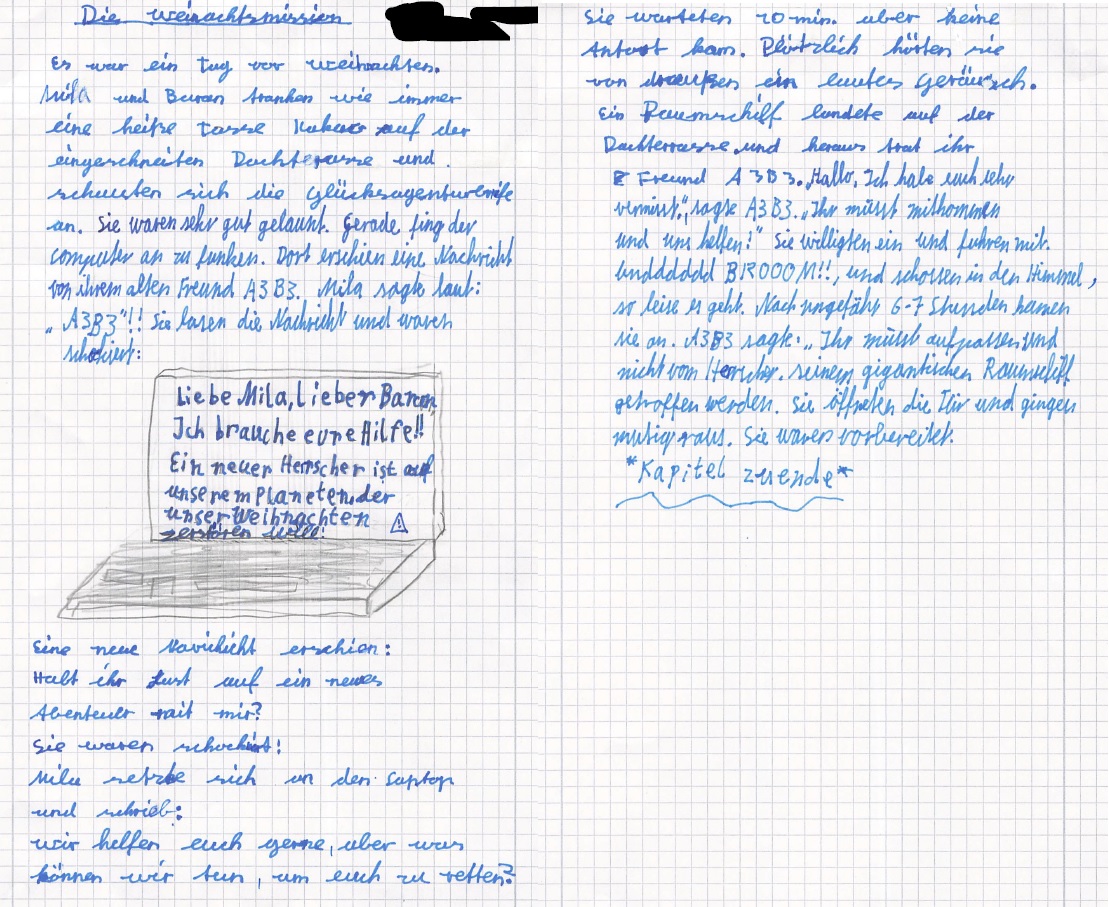 Die Weinachtsmission
Es war ein Tag vor Weihnachten.
Mila und Baran tranken wie immer
eine heiße Tasse Kakao auf der
eingeschneiten Dachterasse und
schauten sich die Glücksagenturemife
an. Sie waren sehr gut gelaunt. Gerade fing der
Computer an zu funken. Dort erschien eine Nachricht
von ihrem alten Freund A3B3. Mila sagte laut:
„A3B3"!! Sie lasen die Nachricht und waren
schockiert:
Liebe Mila, lieber Baran,
Ich brauche eure Hilfe!!
Ein neuer Herrscher ist auf
unserem Planeten, der
unser Weihnachten
zerstören will!
Eine neue Navichicht erschien:
Habt ihr Lust auf ein neues
Abenteuer mit mir?
Sie waren schockiert!
Mila setzte sich an den Laptop
und schrieb:
wir helfen euch gerne, aber was
können wir tun, um euch zu retten?
Sie warteten 10 min. aber keine
Antwort kam. Plötzlich hörten sie
von draußen ein lautes Geräusch.
Ein Raumschiff landete auf der
Dachterrasse und heraus trat ihr
Freund A3B3. „Hallo, Ich habe euch sehr
vermisst", sagte A3B3. „Ihr müsst mitkommen
und uns helfen!" Sie willigten ein und fuhren mit.
Undddddd BROOOM!!, und schossen in den Himmel,
so leise es geht. Nach ungefähr 6-7 Stunden kamen
sie an. A3B3 sagte: „Ihr müsst aufpassen und
nicht vom Herrscher, seinem gigantischen Raumschiff
getroffen werden. Sie öffneten die Tür und gingen
mutig raus. Sie waren vorbereitet.
*Kapitel zuende*